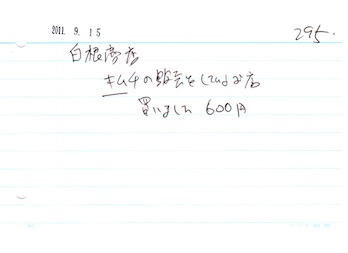 2011. 9. 15
295.
白根商店
キムチの販売をしているお店
買いました 600円